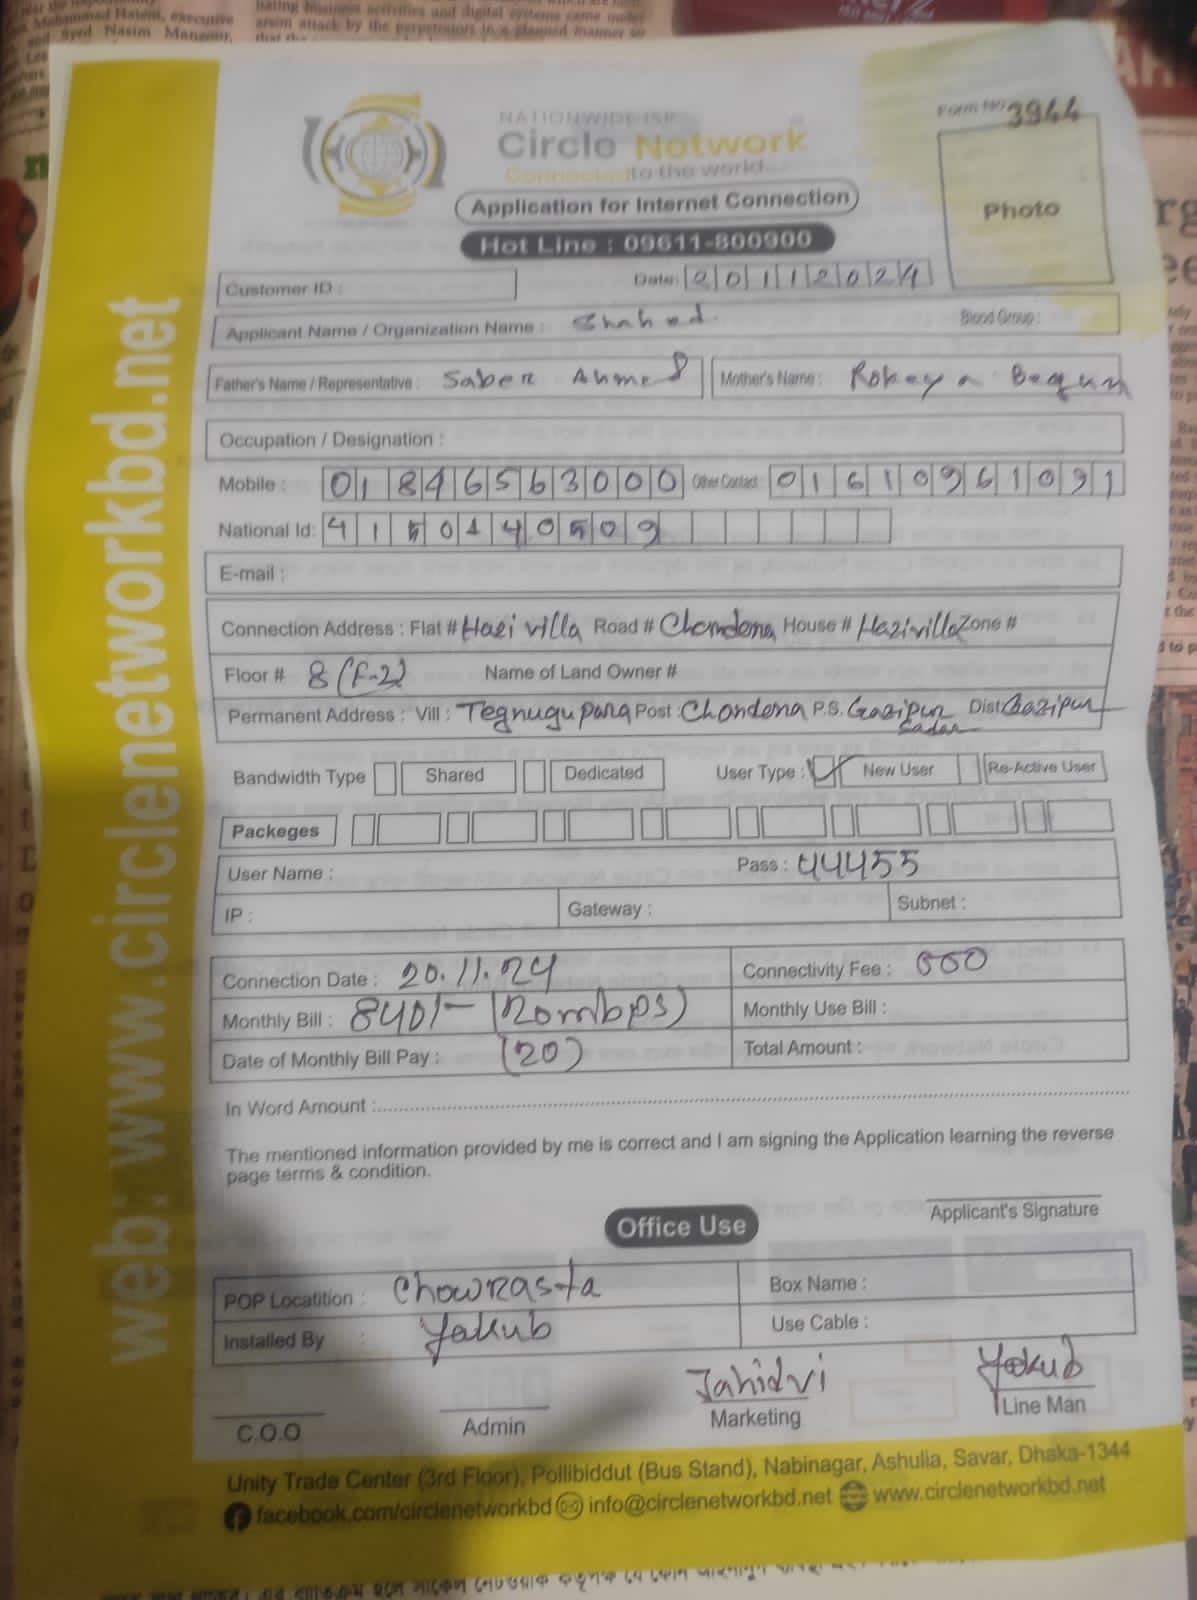 Mohammed Hatem, executive
and Syed Nasim Manzour,
arson attack by the perpetrators in a planned manner
web: www.circlenetworkbd.net
NATIONWIDE ISP
Circle Network
Connected to the world...
Form No 3944
Photo
Application for Internet Connection
Hot Line : 09611-800900
Customer ID :
Date: 20112024
Applicant Name / Organization Name : Shahed
Blood Group :
Father's Name / Representative : Saber Ahmed
Mother's Name : Rokeya Begum
Occupation / Designation :
Mobile : 01846563000 Other Contact : 01610961091
National Id: 4150140509
E-mail :
Connection Address : Flat # Hazi villa Road # Chandona House # Hazivilla Zone #
Floor # 8 (F-2) Name of Land Owner #
Permanent Address : Vill : Tegnugupara Post : Chandona P.S. Gazipur Sadar Dist Gazipur
Bandwidth Type Shared Dedicated User Type : New User Re-Active User
Packeges
User Name : Pass : 44455
IP : Gateway : Subnet :
Connection Date : 20.11.24 Connectivity Fee : 000
Monthly Bill : 840/- (20mbps) Monthly Use Bill :
Date of Monthly Bill Pay : (20) Total Amount :
In Word Amount :
The mentioned information provided by me is correct and I am signing the Application learning the reverse
page terms & condition.
Applicant's Signature
Office Use
POP Locatition : Chowrasta Box Name :
Installed By : Yakub Use Cable :
Jahidvi Yakub
C.O.O Admin Marketing Line Man
Unity Trade Center (3rd Floor), Pollibiddut (Bus Stand), Nabinagar, Ashulia, Savar, Dhaka-1344
facebook.com/circlenetworkbd info@circlenetworkbd.net www.circlenetworkbd.net